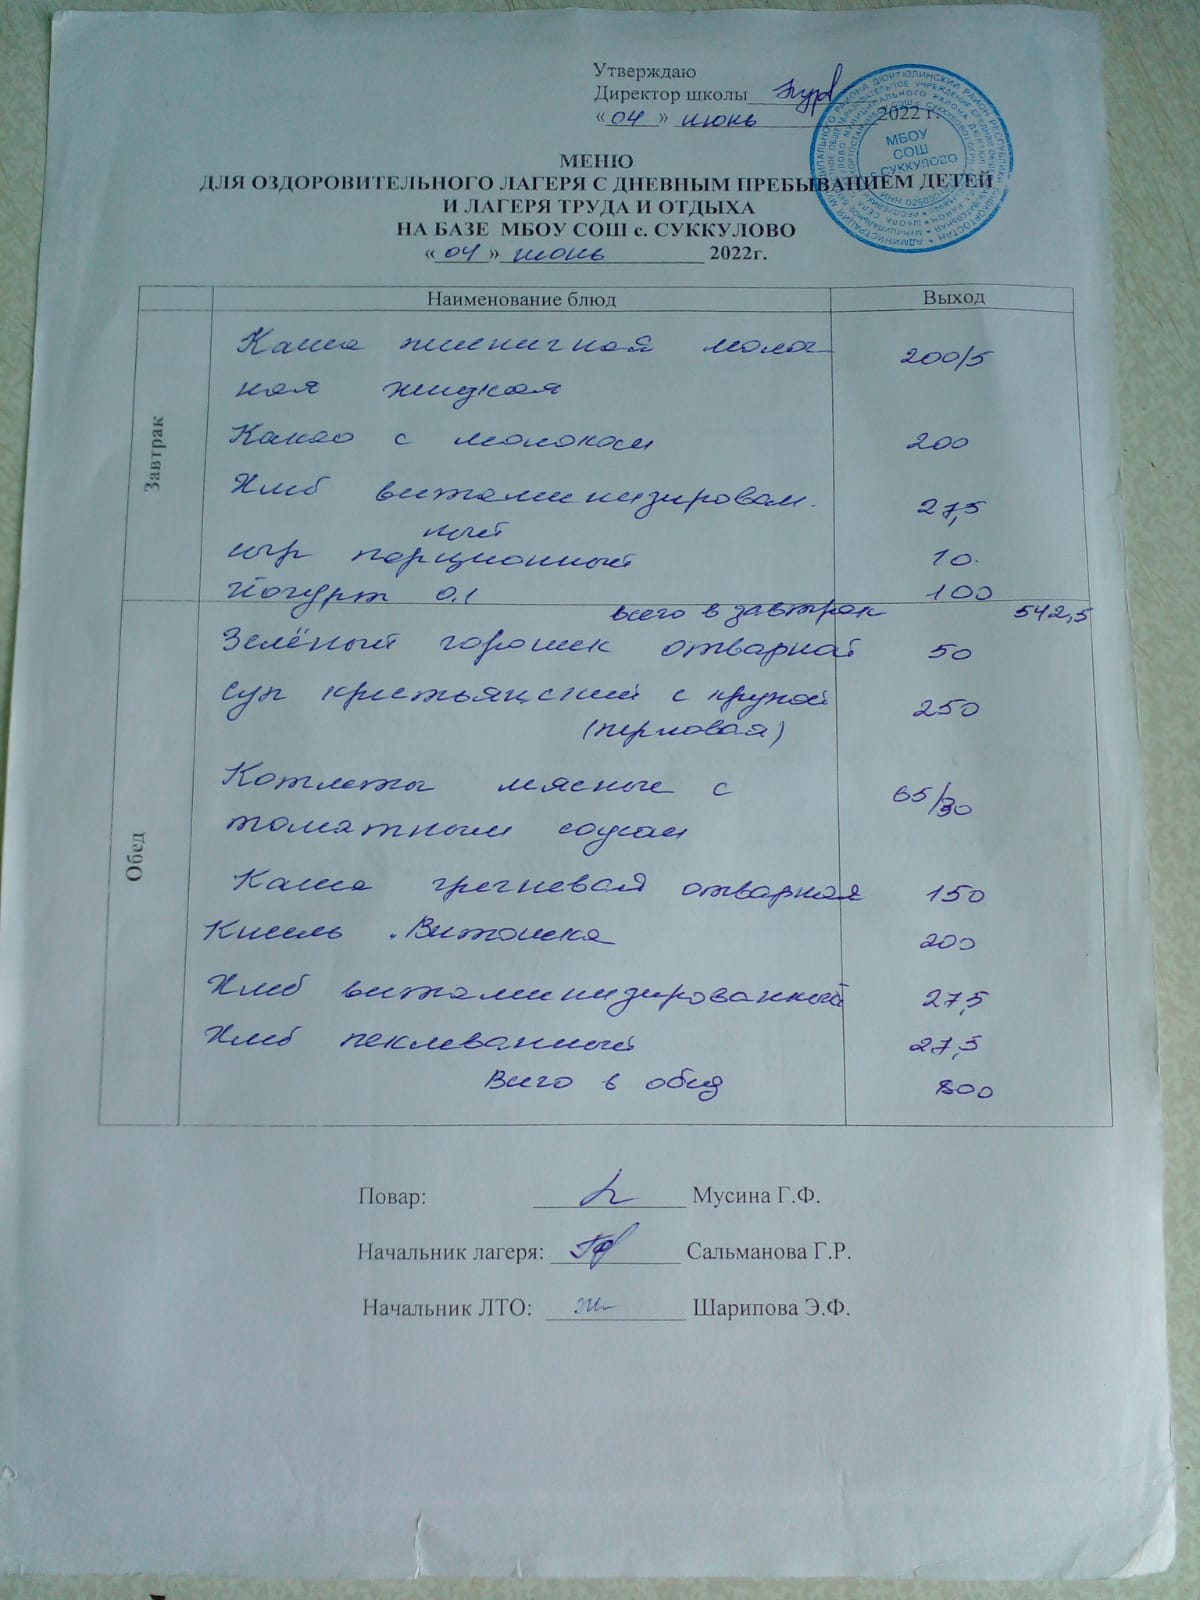 Утверждаю
Директор школы
«04» июнь 2022 г.
МБОУ
СОШ
с. СУККУЛОВО
МЕНЮ
ДЛЯ ОЗДОРОВИТЕЛЬНОГО ЛАГЕРЯ С ДНЕВНЫМ ПРЕБЫВАНИЕМ ДЕТЕЙ
И ЛАГЕРЯ ТРУДА И ОТДЫХА
НА БАЗЕ МБОУ СОШ с. СУККУЛОВО
«04» июнь 2022г.
Наименование блюд Выход
Завтрак
Каша пшеничная молоч 200/5
ная жидкая
Какао с молоком 200
Хлеб витаминизирован. 27,5
ный
сыр порционный 10.
Йогурт 0.1 100
всего в завтрак 542,5
Обед
Зелёный горошек отварной 50
Суп крестьянский с крупой 250
(перловая)
Котлеты мясные с 65/30
томатным соусом
Каша гречневая отварная 150
Кисель Витошка 200
Хлеб витаминизированный 27,5
Хлеб пеклеванный 27,5
Всего в обед 800
Повар: Мусина Г.Ф.
Начальник лагеря: Сальманова Г.Р.
Начальник ЛТО: Шарипова Э.Ф.